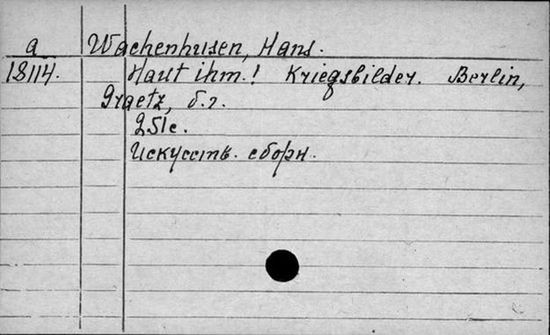 a Wachenhusen, Hans.
18114. Haut ihm! Kriegsbilder. Berlin,
Graetz, б.г.
251с.
Искусств. сборн.